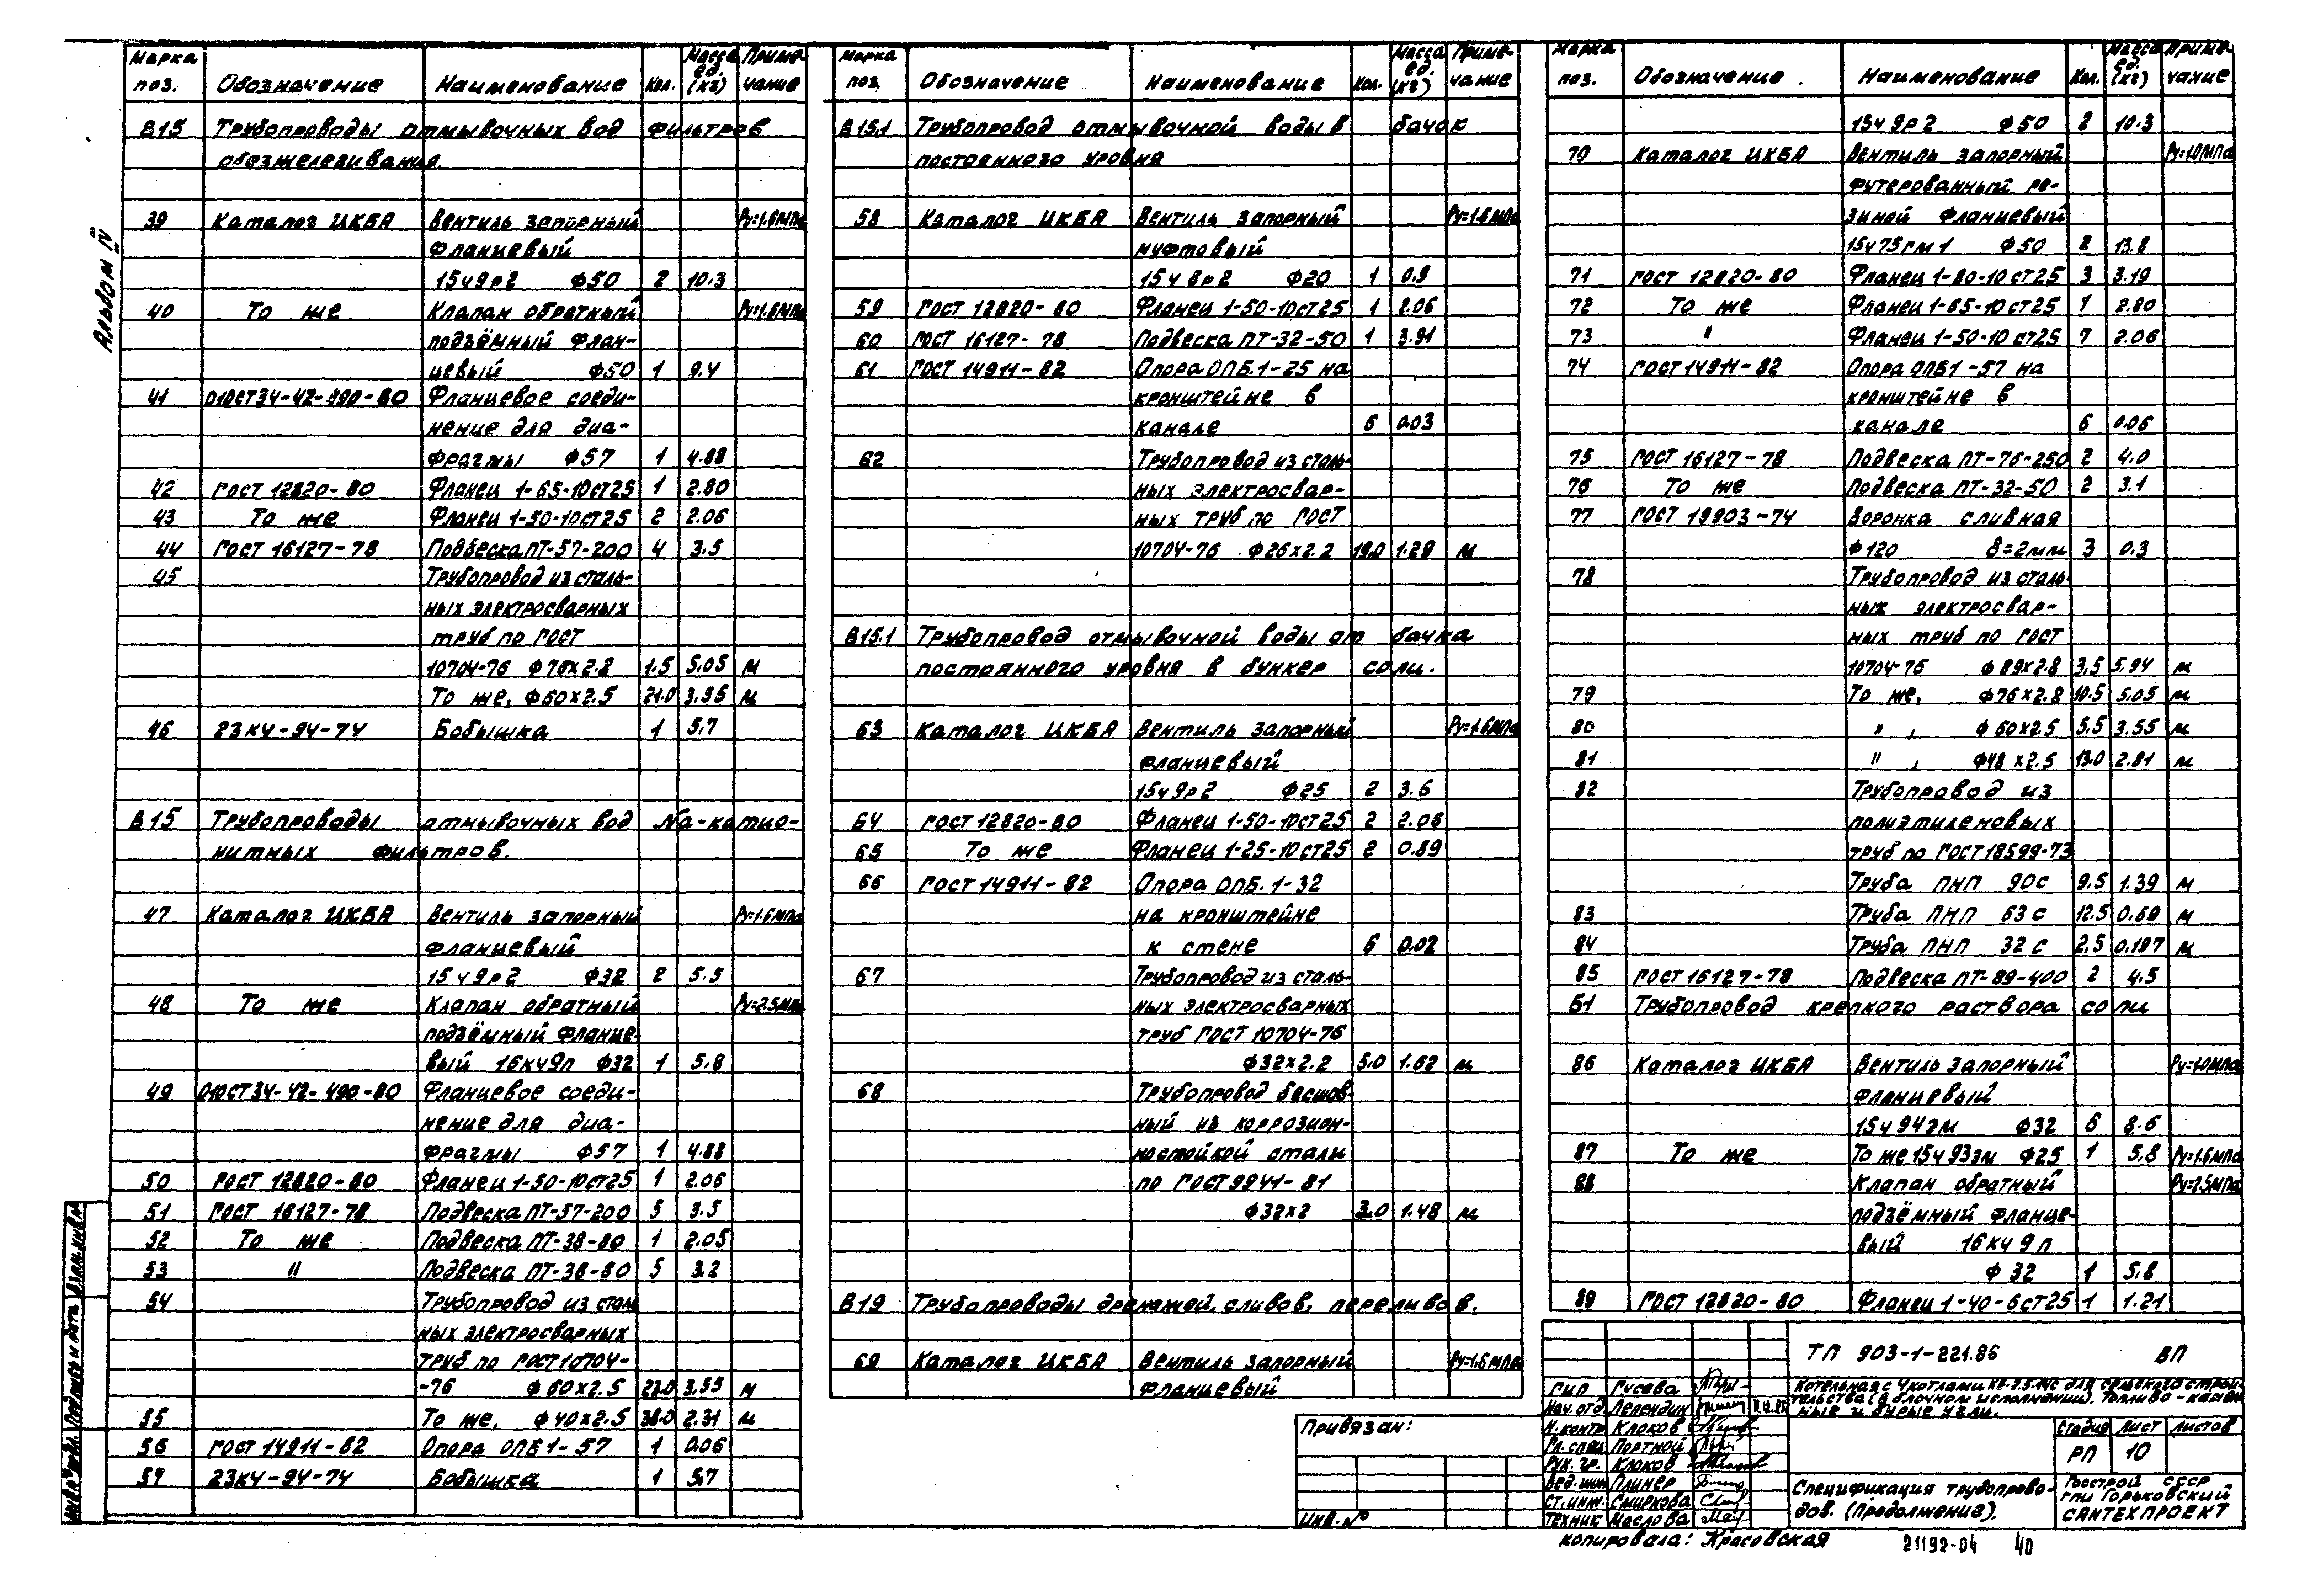 Альбом IV
Марка поз. Обозначение Наименование Кол. Масса ед. (кг) Примечание
В15 Трубопроводы отмывочных вод фильтров
обезжелезивания.
39 Каталог ЦКБА Вентиль запорный Ру=1.6МПа
фланцевый
15ч9р2 ф50 2 10.3
40 То же Клапан обратный Ру=1.6МПа
подъёмный флан-
цевый ф50 1 9.4
41 01ОСТ34-42-490-80 Фланцевое соеди-
нение для диа-
фрагмы ф57 1 4.88
42 ГОСТ 12820-80 Фланец 1-65-10ст25 1 2.80
43 То же Фланец 1-50-10ст25 2 2.06
44 ГОСТ 16127-78 Подвеска ПТ-57-200 4 3.5
45 Трубопровод из сталь-
ных электросварных
труб по ГОСТ
10704-76 ф76х2.8 1.5 5.05 м
То же, ф60х2.5 21.0 3.55 м
46 23К4-94-74 Бобышка 1 5,7
В15 Трубопроводы отмывочных вод Na-катио-
нитных фильтров.
47 Каталог ЦКБА Вентиль запорный Ру=1.6МПа
фланцевый
15ч9р2 ф32 2 5.5
48 То же Клапан обратный Ру=2.5МПа
подъёмный фланце-
вый 16кч9п ф32 1 5.8
49 01ОСТ34-42-490-80 Фланцевое соеди-
нение для диа-
фрагмы ф57 1 4.88
50 ГОСТ 12820-80 Фланец 1-50-10ст25 1 2.06
51 ГОСТ 16127-78 Подвеска ПТ-57-200 5 3.5
52 То же Подвеска ПТ-38-80 1 2.05
53 " Подвеска ПТ-38-80 5 3.2
54 Трубопровод из сталь
ных электросварных
труб по ГОСТ10704-
-76 ф60х2.5 22.0 3.55 м
55 То же, ф40х2.5 38.0 2.31 м
56 ГОСТ 14911-82 Опора ОПБ1-57 1 0.06
57 23К4-94-74 Бобышка 1 5.7
Марка поз. Обозначение Наименование Кол. Масса ед. (кг) Примечание
В15.1 Трубопровод отмывочной воды в бачок
постоянного уровня
58 Каталог ЦКБА Вентиль запорный Ру=1.6МПа
муфтовый
15ч8р2 ф20 1 0.9
59 ГОСТ 12820-80 Фланец 1-50-10ст25 1 2.06
60 ГОСТ 16127-78 Подвеска ПТ-32-50 1 3.91
61 ГОСТ 14911-82 Опора ОПБ.1-25 на
кронштейне в
канале 6 0.03
62 Трубопровод из сталь-
ных электросвар-
ных труб по ГОСТ
10704-76 ф26х2.2 19.0 1.29 м
В15.1 Трубопровод отмывочной воды от бачка
постоянного уровня в бункер соли.
63 Каталог ЦКБА Вентиль запорный Ру=1.6МПа
фланцевый
15ч9р2 ф25 2 3.6
64 ГОСТ 12820-80 Фланец 1-50-10ст25 2 2.06
65 То же Фланец 1-25-10ст25 2 0.89
66 ГОСТ 14911-82 Опора ОПБ.1-32
на кронштейне
к стене 6 0.02
67 Трубопровод из сталь-
ных электросварных
труб ГОСТ 10704-76
ф32х2.2 5.0 1.62 м
68 Трубопровод бесшов-
ный из коррозион-
ностойкой стали
по ГОСТ9941-81
ф32х2 3.0 1.48 м
В19 Трубопроводы дренажей, сливов, переливов.
69 Каталог ЦКБА Вентиль запорный Ру=1.6МПа
фланцевый
Марка поз. Обозначение Наименование Кол. Масса ед. (кг) Примечание
15ч9р2 ф50 2 10.3
70 Каталог ЦКБА Вентиль запорный Ру=1.0МПа
футерованный ре-
зиной фланцевый
15ч75гм1 ф50 2 13.8
71 ГОСТ 12820-80 Фланец 1-80-10ст25 3 3.19
72 То же Фланец 1-65-10ст25 1 2.80
73 " Фланец 1-50-10ст25 7 2.06
74 ГОСТ14911-82 Опора ОПБ1-57 на
кронштейне в
канале 6 0.06
75 ГОСТ 16127-78 Подвеска ПТ-76-250 2 4.0
76 То же Подвеска ПТ-32-50 2 3.1
77 ГОСТ 19903-74 Воронка сливная
ф120 δ=2мм 3 0.3
78 Трубопровод из сталь
ных электросвар-
ных труб по ГОСТ
10704-76 ф89х2.8 3.5 5.94 м
79 То же, ф76х2.8 10.5 5.05 м
80 " , ф60х2.5 5.5 3.55 м
81 " , ф48х2.5 13.0 2.81 м
82 Трубопровод из
полиэтиленовых
труб по ГОСТ18599-73
Труба ПНП 90с 9.5 1.39 м
83 Труба ПНП 63с 12.5 0.69 м
84 Труба ПНП 32с 2.5 0.197 м
85 ГОСТ16127-78 Подвеска ПТ-89-400 2 4.5
Б1 Трубопровод крепкого раствора соли
86 Каталог ЦКБА Вентиль запорный Ру=1.0МПа
фланцевый
15ч94эм ф32 6 8.6
87 То же То же15ч93эм ф25 1 5,8 Ру=1.6МПа
88 Клапан обратный Ру=2.5МПа
подъёмный фланце-
вый 16кч9п
ф32 1 5.8
89 ГОСТ 12820-80 Фланец 1-40-6ст25 1 1.21
ТП 903-1-221.86 ВП
Котельная с 4 котлами КЕ-2.5-14С для сельского строи-
тельства (в блочном исполнении). Топливо - камен-
ные и бурые угли.
Гип Гусева
Нач.отд. Лелендин
Н.контр Клоков
Гл.спец Портной
Рук.гр. Клоков
Вед.инж Плинер
Ст.инж. Смиркова
Техник Маслова
Стадия Лист Листов
РП 10
Спецификация трубопрово-
дов. (Продолжение).
Госстрой СССР
ГПИ Горьковский
САНТЕХПРОЕКТ
Привязан:
Инв.№
Инв.№ подл. Подпись и дата Взам.инв.№
Копировала: Красовская
21192-04 40